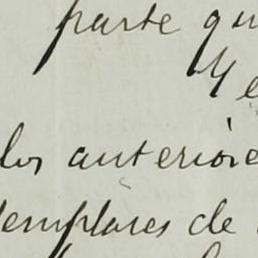 parte qu
Ye
los anteriore
emplares de